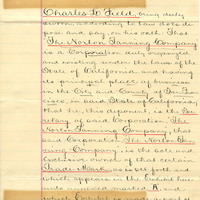 Charles L. Field, being duly
sworn, according to law does de-
pose and say, on his oath: That
The Norton Tanning Company
is a Corporation duly organized
and existing under the laws of the
State of California and having
its principal place of business
in the City and County of San Fran-
cisco, in said State of California;
that he, this deponent is the Sec-
retary of said Corporation The
Norton Tanning Company, that
said Corporation The Norton Tan-
ning Company is the sole and
exclusive owner of that certain
Trade Mark, as set forth and
which appears in the exhibit here-
unto annexed marked A, and
which